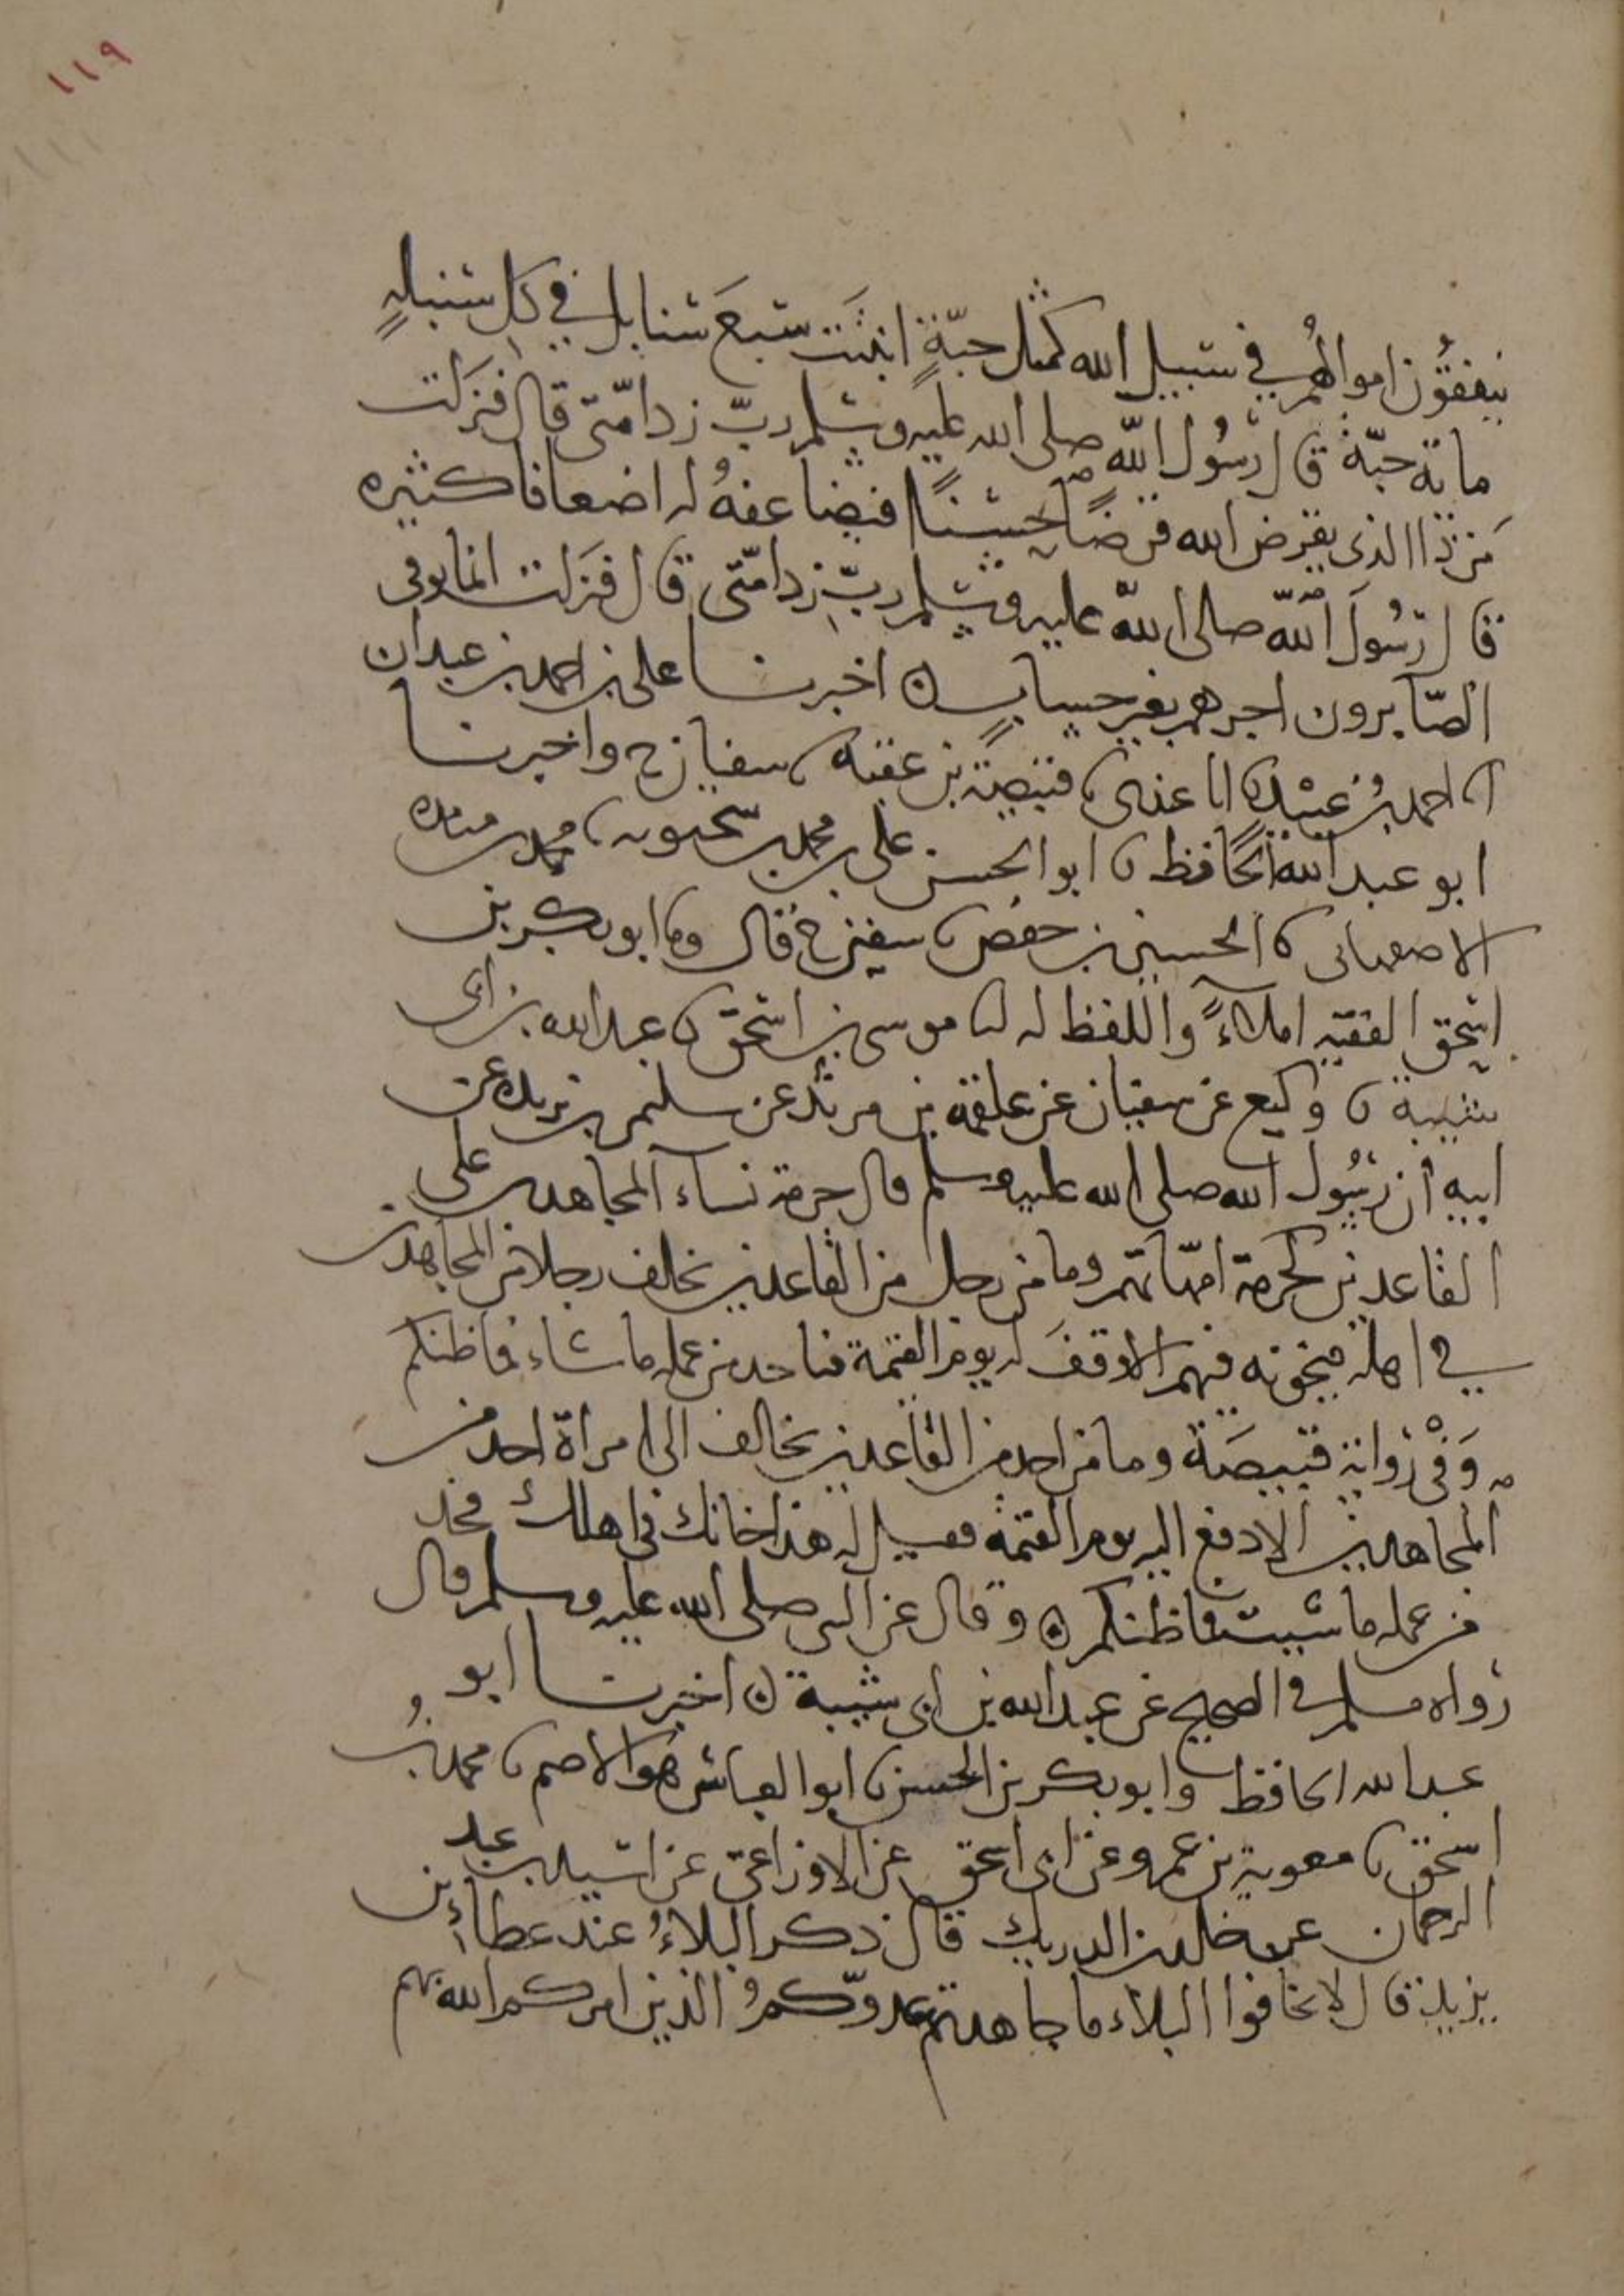 ١١٩
ينفقون اموالهم في سبيل الله كمثل حبّةٍ انبتت سبعَ سنابل في كل سنبلةٍ
ماية حبّة قال رسُول الله صلى الله عليه وسلم ربّ زد امّتى قال فنزلت
مَن ذا الذى يقرض الله قرضًا حسنًا فيضاعفهُ له اضعافا كثيره
قال رسُول الله صلى الله عليه وسلم ربّ زد امّتى قال فنزلت انما يوفى
الصّابرون اجرهم بغير حسابٍ اخبرنا على بن احمد بن عبدان
احمد بن عبيد نا قبيصة بن عقبة نا سفيان ح واخبرنا
ابو عبد الله الحافظ نا ابو الحسن على بن محمد بن سختويه نا محمد بن منده
الاصفهانى نا الحسين بن حفص نا سفين ح قال ونا ابو بكر بن
اسحق الفقيه املاءً واللفظ له انا موسى بن اسحق نا عبد الله بن ابى
شيبة نا وكيع عن سفيان عن علقمة بن مرثد عن سليمن بن بريده عن
ابيه ان رسُول الله صلى الله عليه وسلم قال حرمة نساء المجاهدين على
القاعدين كحرمة امّهاتهم وما من رجل من القاعدين يخلف رجلا من المجاهدين
في اهله فيخونه فيهم الا وقفَ له يوم القيمة فياخد من عمله ما شاء فما ظنكم
وَفى رواية قبيصَة وما من احد من القاعدين يخالف الى امراة احد من
المجاهدين الا دفع اليه يوم القيمة فيقال له هذا خانك فى اهلك فخذ
من عمله ما شيت فما ظنكم وقال عن النبى صلى الله عليه وسلم قال
رواه مسلم في الصحيح عن عبد الله بن ابى شيبة اخبرنا ابو
عبد الله الحافظ وابو بكر بن الحسن نا ابو العباس هو الاصم نا محمد بنُ
اسحق نا معوية بن عمرو عن ابى اسحق عن الاوزاعى عن اسيد بن عبد
الرحمان عن خلد بن الدريك قال ذكر البلاءُ عند عطاء بن
يزيد قال لا تخافوا البلاء ما جاهدتم عدوّكمُ الذين امركم الله بهم